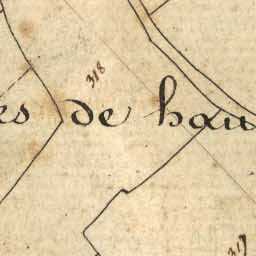 318
es de hau
317